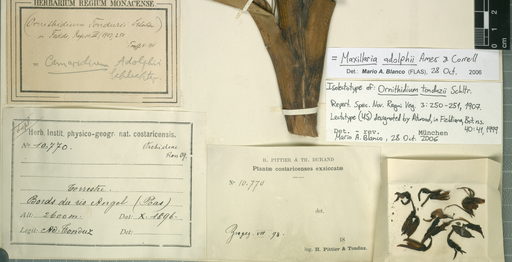 HERBARIUM REGIUM MONACENSE.
(Ornithidium Tonduzii Schltr.)
in Fedde, Repert. III 1907, 250
= Camaridium Adolphi
Schlechter
= Maxillaria adolphii Ames & Correll
Det.: Mario A. Blanco (FLAS), 28 Oct. 2006
Isolectotype of: Ornithidium tonduzii Schltr.
Repert. Spec. Nov. Regni Veg. 3: 250-251, 1907.
Lectotype (US) designated by Atwood, in Fieldiana, Bot. n.s.
40: 49, 1999
Det. - rev. München
Mario A. Blanco, 28 Oct. 2006
Herb. Instit. physico-geogr. nat. costaricensis.
No 10,770. Orchideae
Terrestre
Bords du río Angel (Poás)
Alt: 2600 m. Dat: X. 1896.
Legit: Ad. Tonduz Det:
H. PITTIER & TH. DURAND
Plantæ costaricenses exsiccatæ
No 10,770
det.
18
leg. H. Pittier & Tonduz.